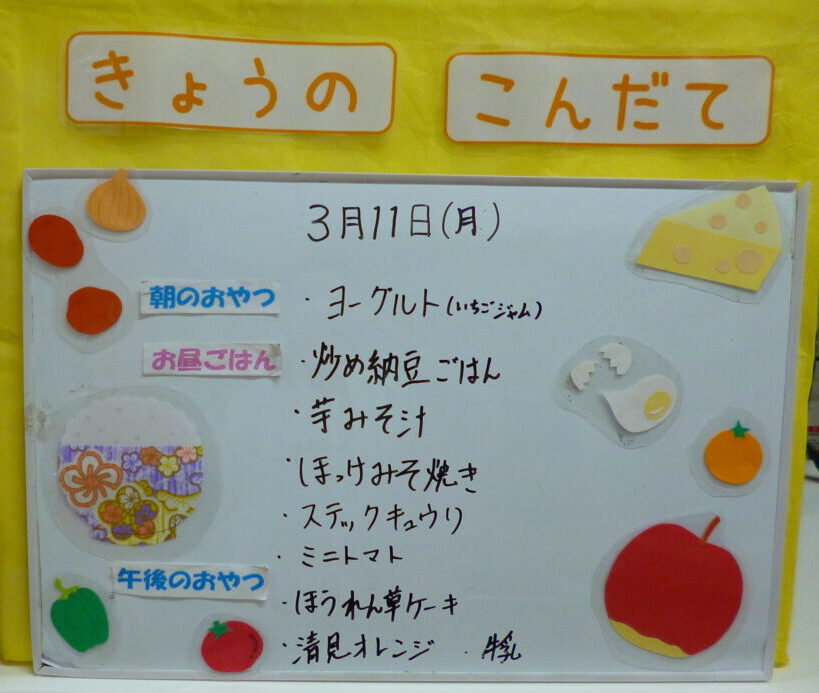 きょうの こんだて
3月11日(月)
朝のおやつ ・ヨーグルト(いちごジャム)
お昼ごはん ・炒め納豆ごはん
・芋みそ汁
・ほっけみそ焼き
・スティックキュウリ
・ミニトマト
午後のおやつ
・ほうれん草ケーキ
・清見オレンジ ・牛乳